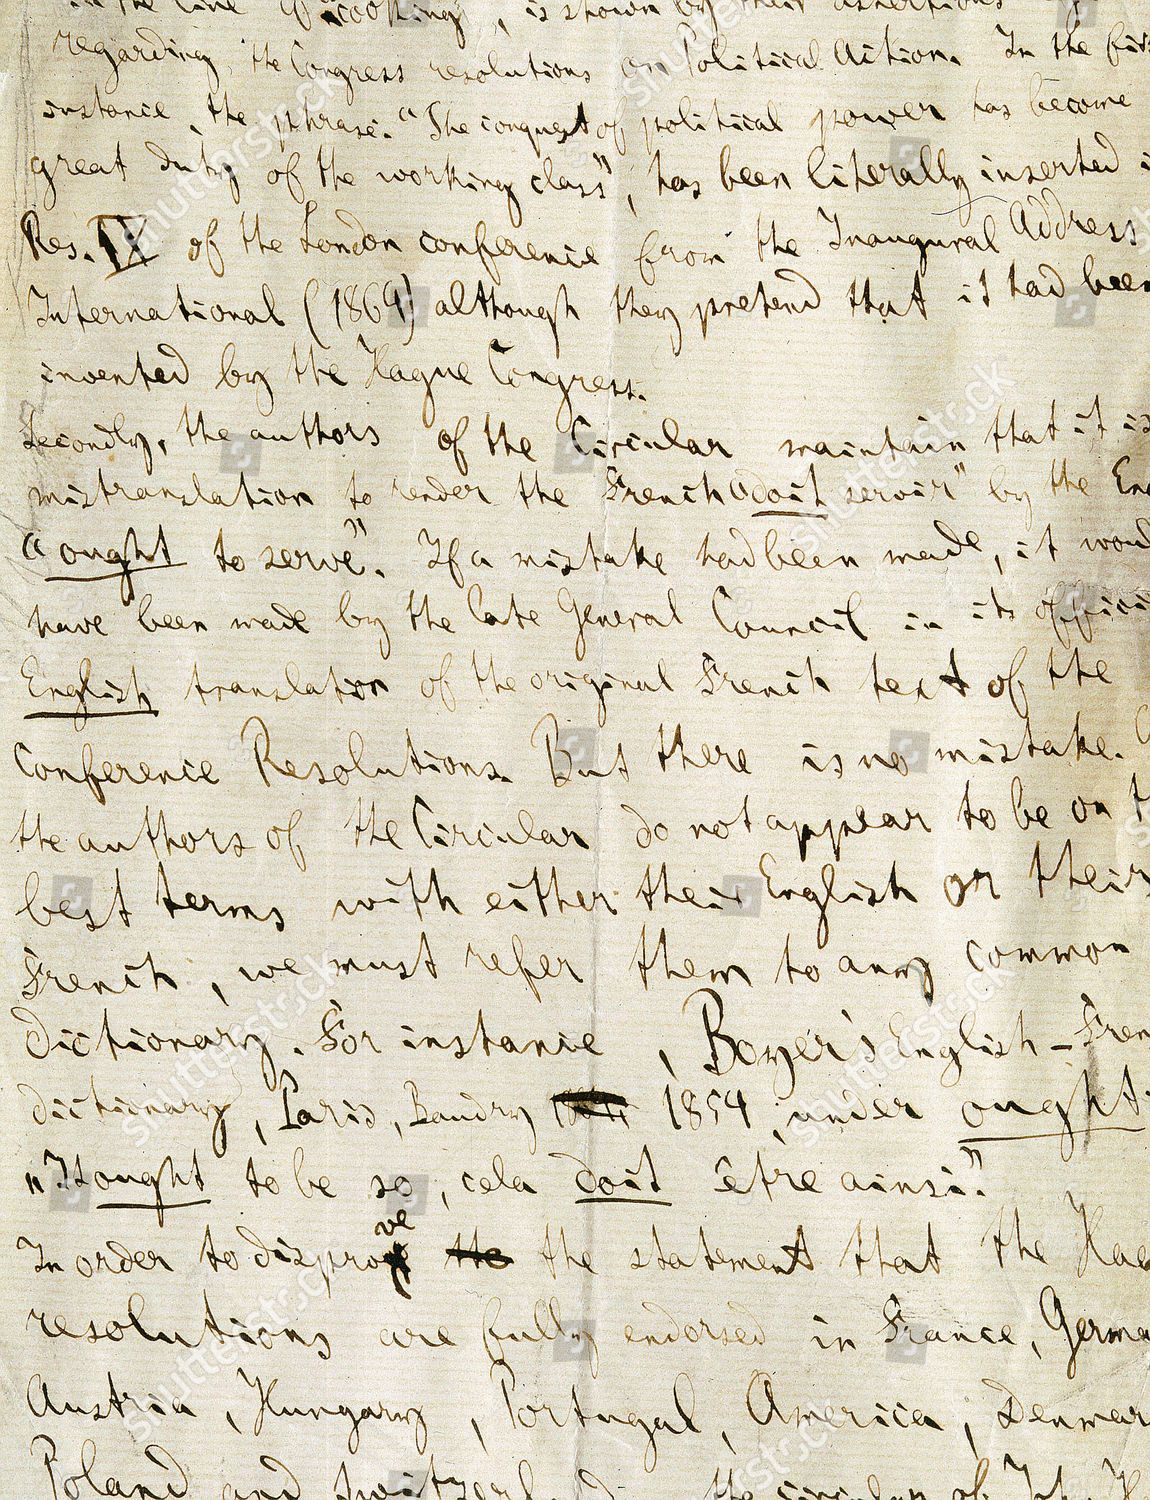 in the line of "cooking", is shown by their assertions
regarding the Congress resolutions on Political Action. In the first
instance, the phrase: "The conquest of political power has become
great duty of the working class", has been literally inserted i
Res. IX of the London conference from the Inaugural Address
International (1864) although they pretend that it had been
invented by the Hague Congress.
Secondly, the authors of the Circular maintain that it is
mistranslation to render the French "doit servir" by the Eng
"ought to serve". If a mistake had been made, it would
have been made by the late General Council in its official
English translation of the original French text of the
Conference Resolutions. But there is no mistake.
the authors of the Circular do not appear to be on t
best terms with either their English or their
French, we must refer them to any common
dictionary. For instance, Boyer's English-Fren
dictionary, Paris, Baudry 1854, under ought:
"It ought to be so, cela doit être ainsi."
In order to disprove the the statement that the Hag
resolutions are fully endorsed in France, Germa
Austria, Hungary, Portugal, America, Denmar
Poland and Switzerland the circular of